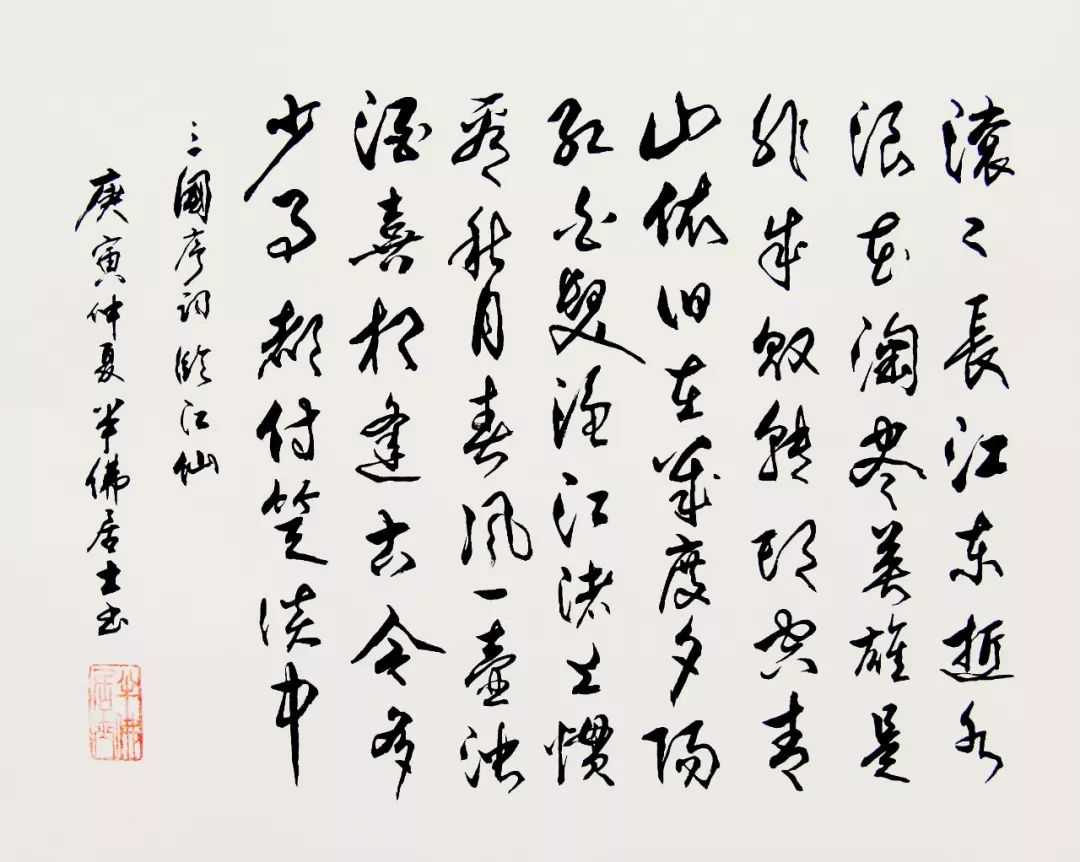 滚〻長江东逝水
浪花淘尽英雄是
非成败转头空青
山依旧在几度夕陽
红白发渔江渚上惯
看秋月春风一壶浊
酒喜相逢古今多
少事都付笑谈中
三國序词临江仙
庚寅仲夏半佛居士书
半佛居士